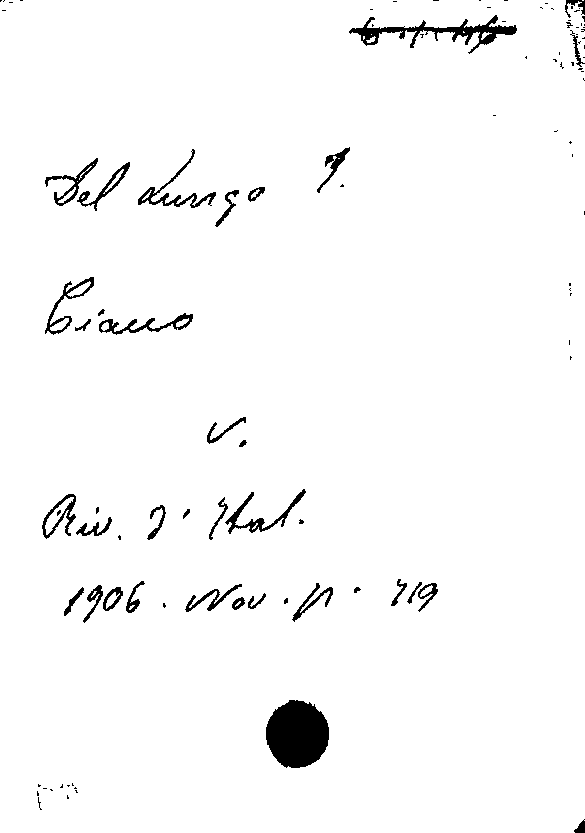 Del Lungo I.
Ciano
v.
Riv. d'Ital.
1906. Nov. p. 719